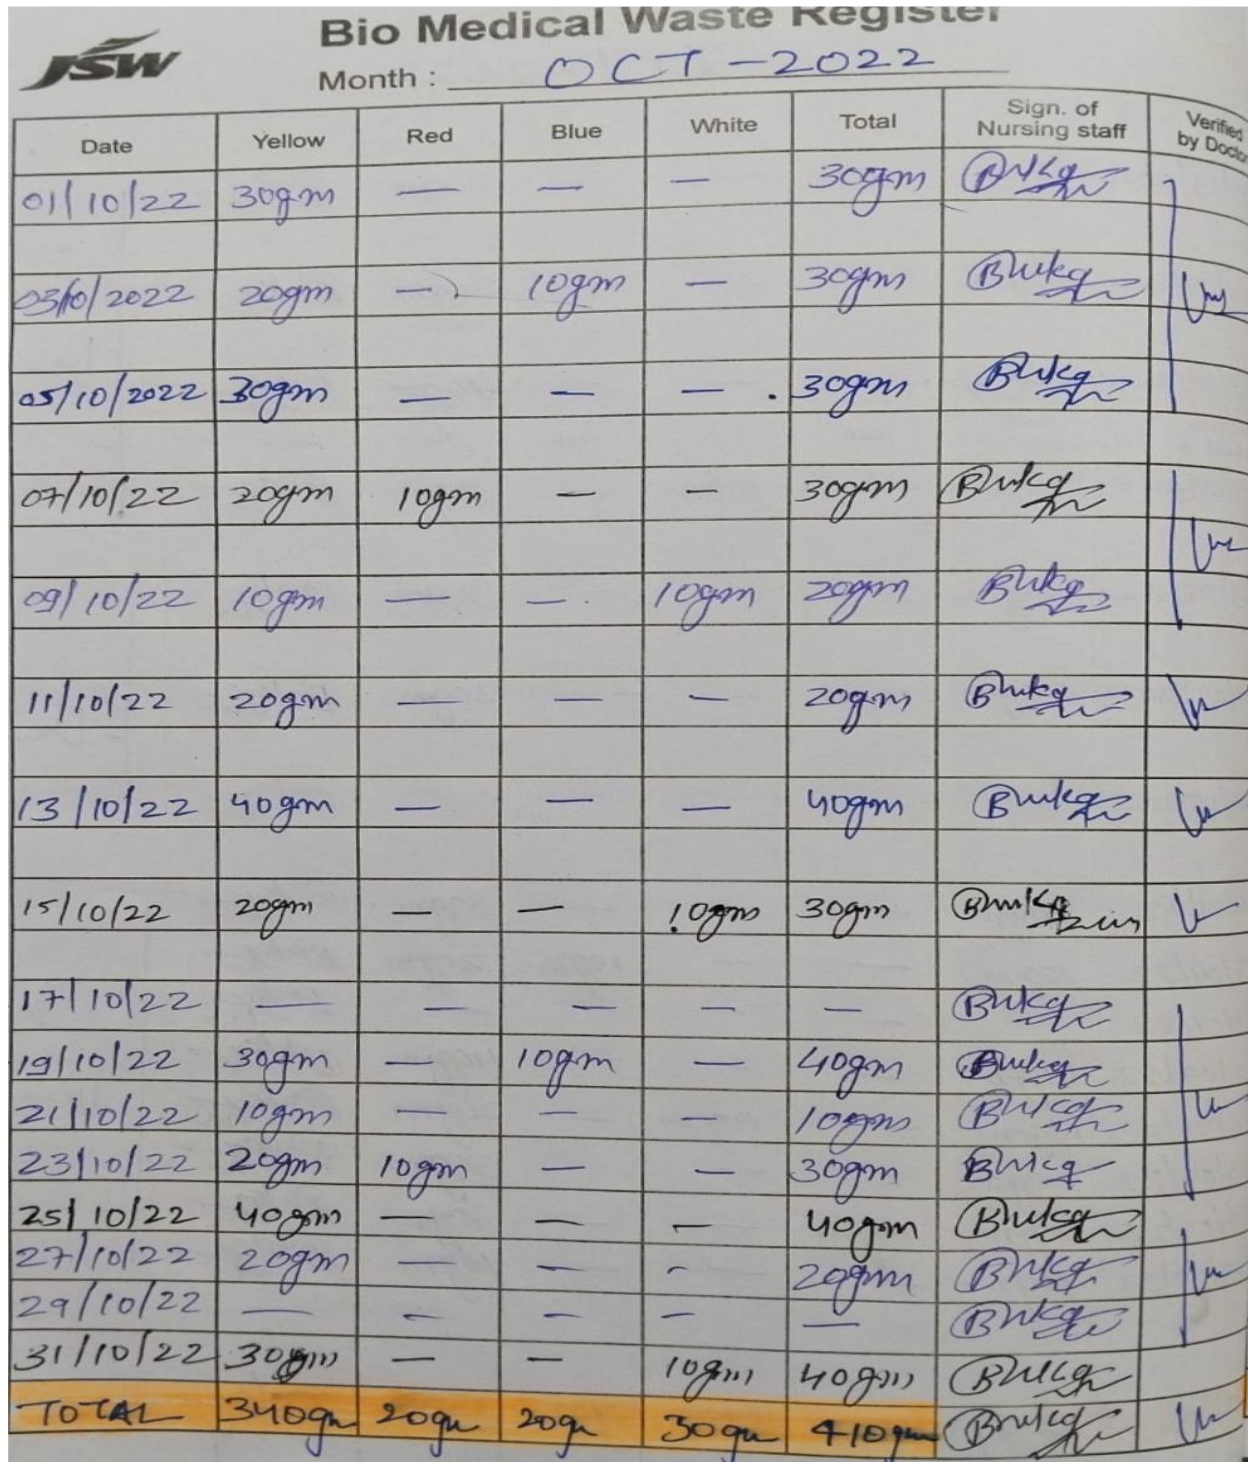 JSW
Bio Medical Waste Register
Month : OCT - 2022
Date Yellow Red Blue White Total Sign. of Nursing staff Verified by Docto
01/10/22 30gm — — — 30gm
03/10/2022 20gm — 10gm — 30gm
05/10/2022 30gm — — — 30gm
07/10/22 20gm 10gm — — 30gm
09/10/22 10gm — — 10gm 20gm
11/10/22 20gm — — — 20gm
13/10/22 40gm — — — 40gm
15/10/22 20gm — — 10gm 30gm
17/10/22 — — — — —
19/10/22 30gm — 10gm — 40gm
21/10/22 10gm — — — 10gm
23/10/22 20gm 10gm — — 30gm
25/10/22 40gm — — — 40gm
27/10/22 20gm — — — 20gm
29/10/22 — — — — —
31/10/22 30gm — — 10gm 40gm
TOTAL 340gm 20gm 20gm 30gm 410gm